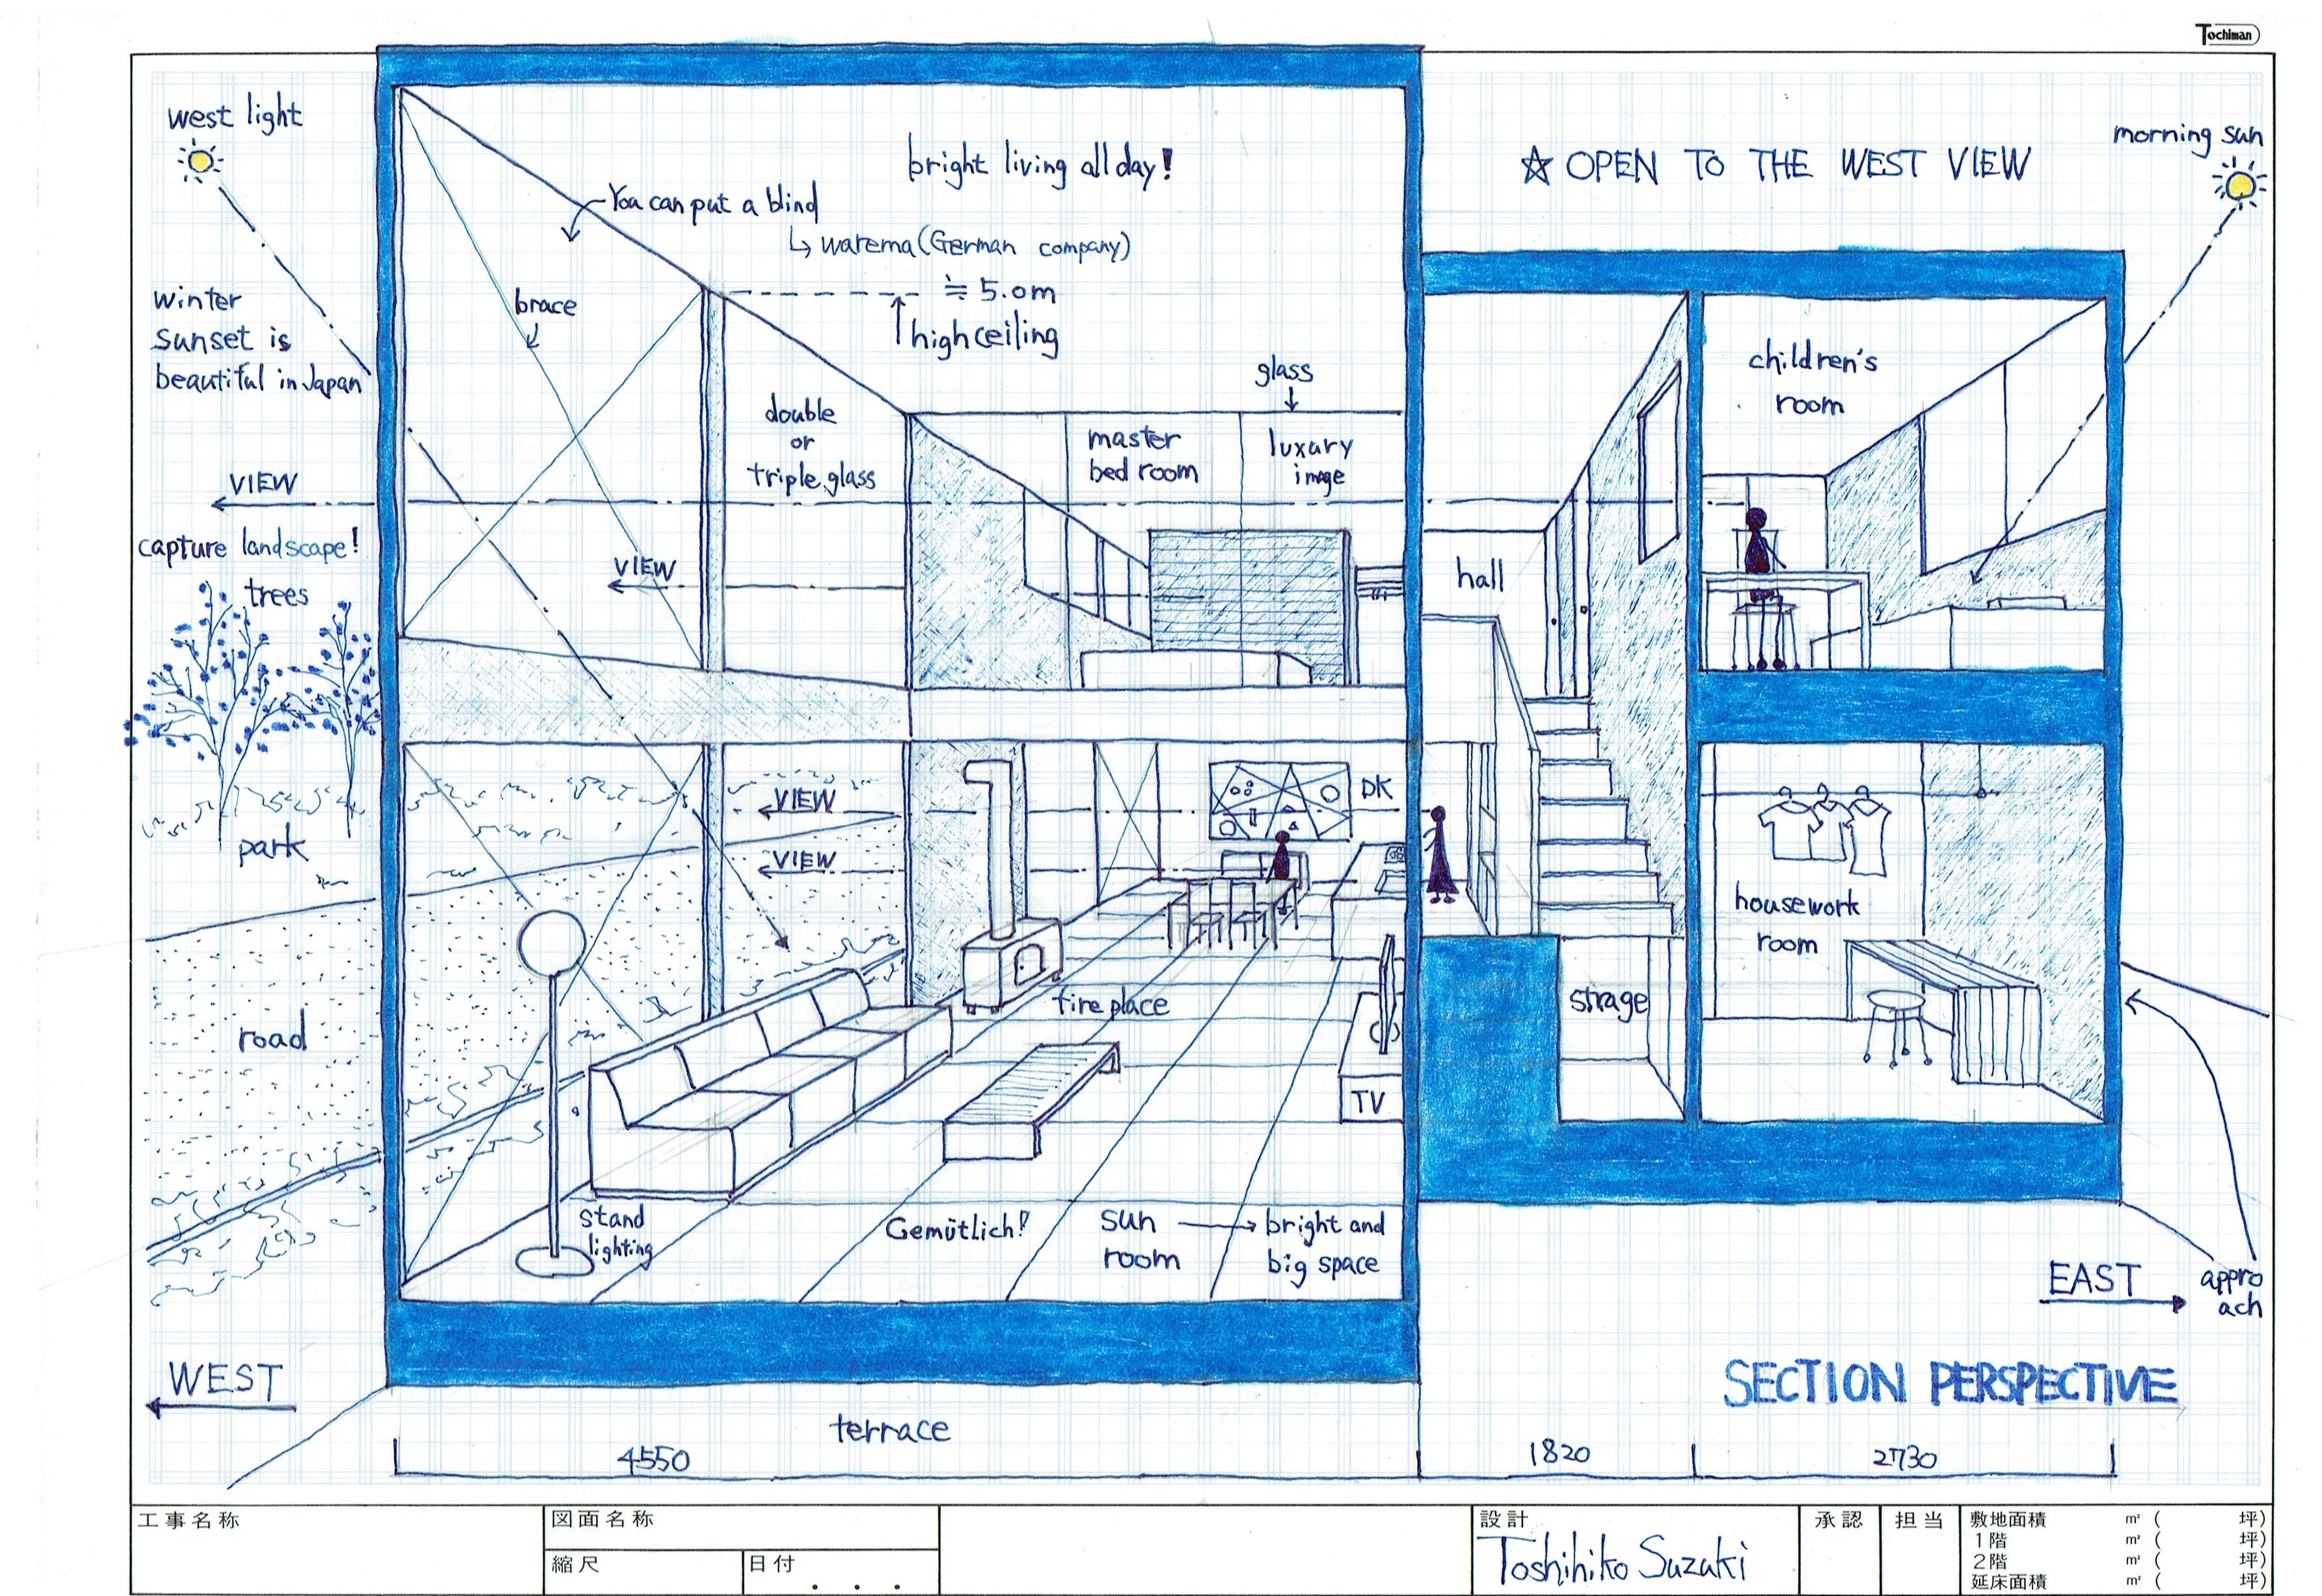 Tochiman
west light
morning sun
bright living all day!
☆ OPEN TO THE WEST VIEW
You can put a blind
↳ warema (German company)
winter
sunset is
beautiful in Japan
brace
≒ 5.0m
high ceiling
glass
children's
room
double
or
triple glass
master
bed room
luxury
image
VIEW
capture landscape!
VIEW
hall
trees
VIEW
DK
park
VIEW
housework
room
road
fire place
strage
TV
stand
lighting
Gemütlich!
sun
room
bright and
big space
EAST
appro
ach
WEST
SECTION PERSPECTIVE
terrace
4550
1820
2730
工事名称
図面名称
縮尺
日付
. . .
設計
Toshihiko Suzuki
承認
担当
敷地面積 ㎡ ( 坪)
1階 ㎡ ( 坪)
2階 ㎡ ( 坪)
延床面積 ㎡ ( 坪)